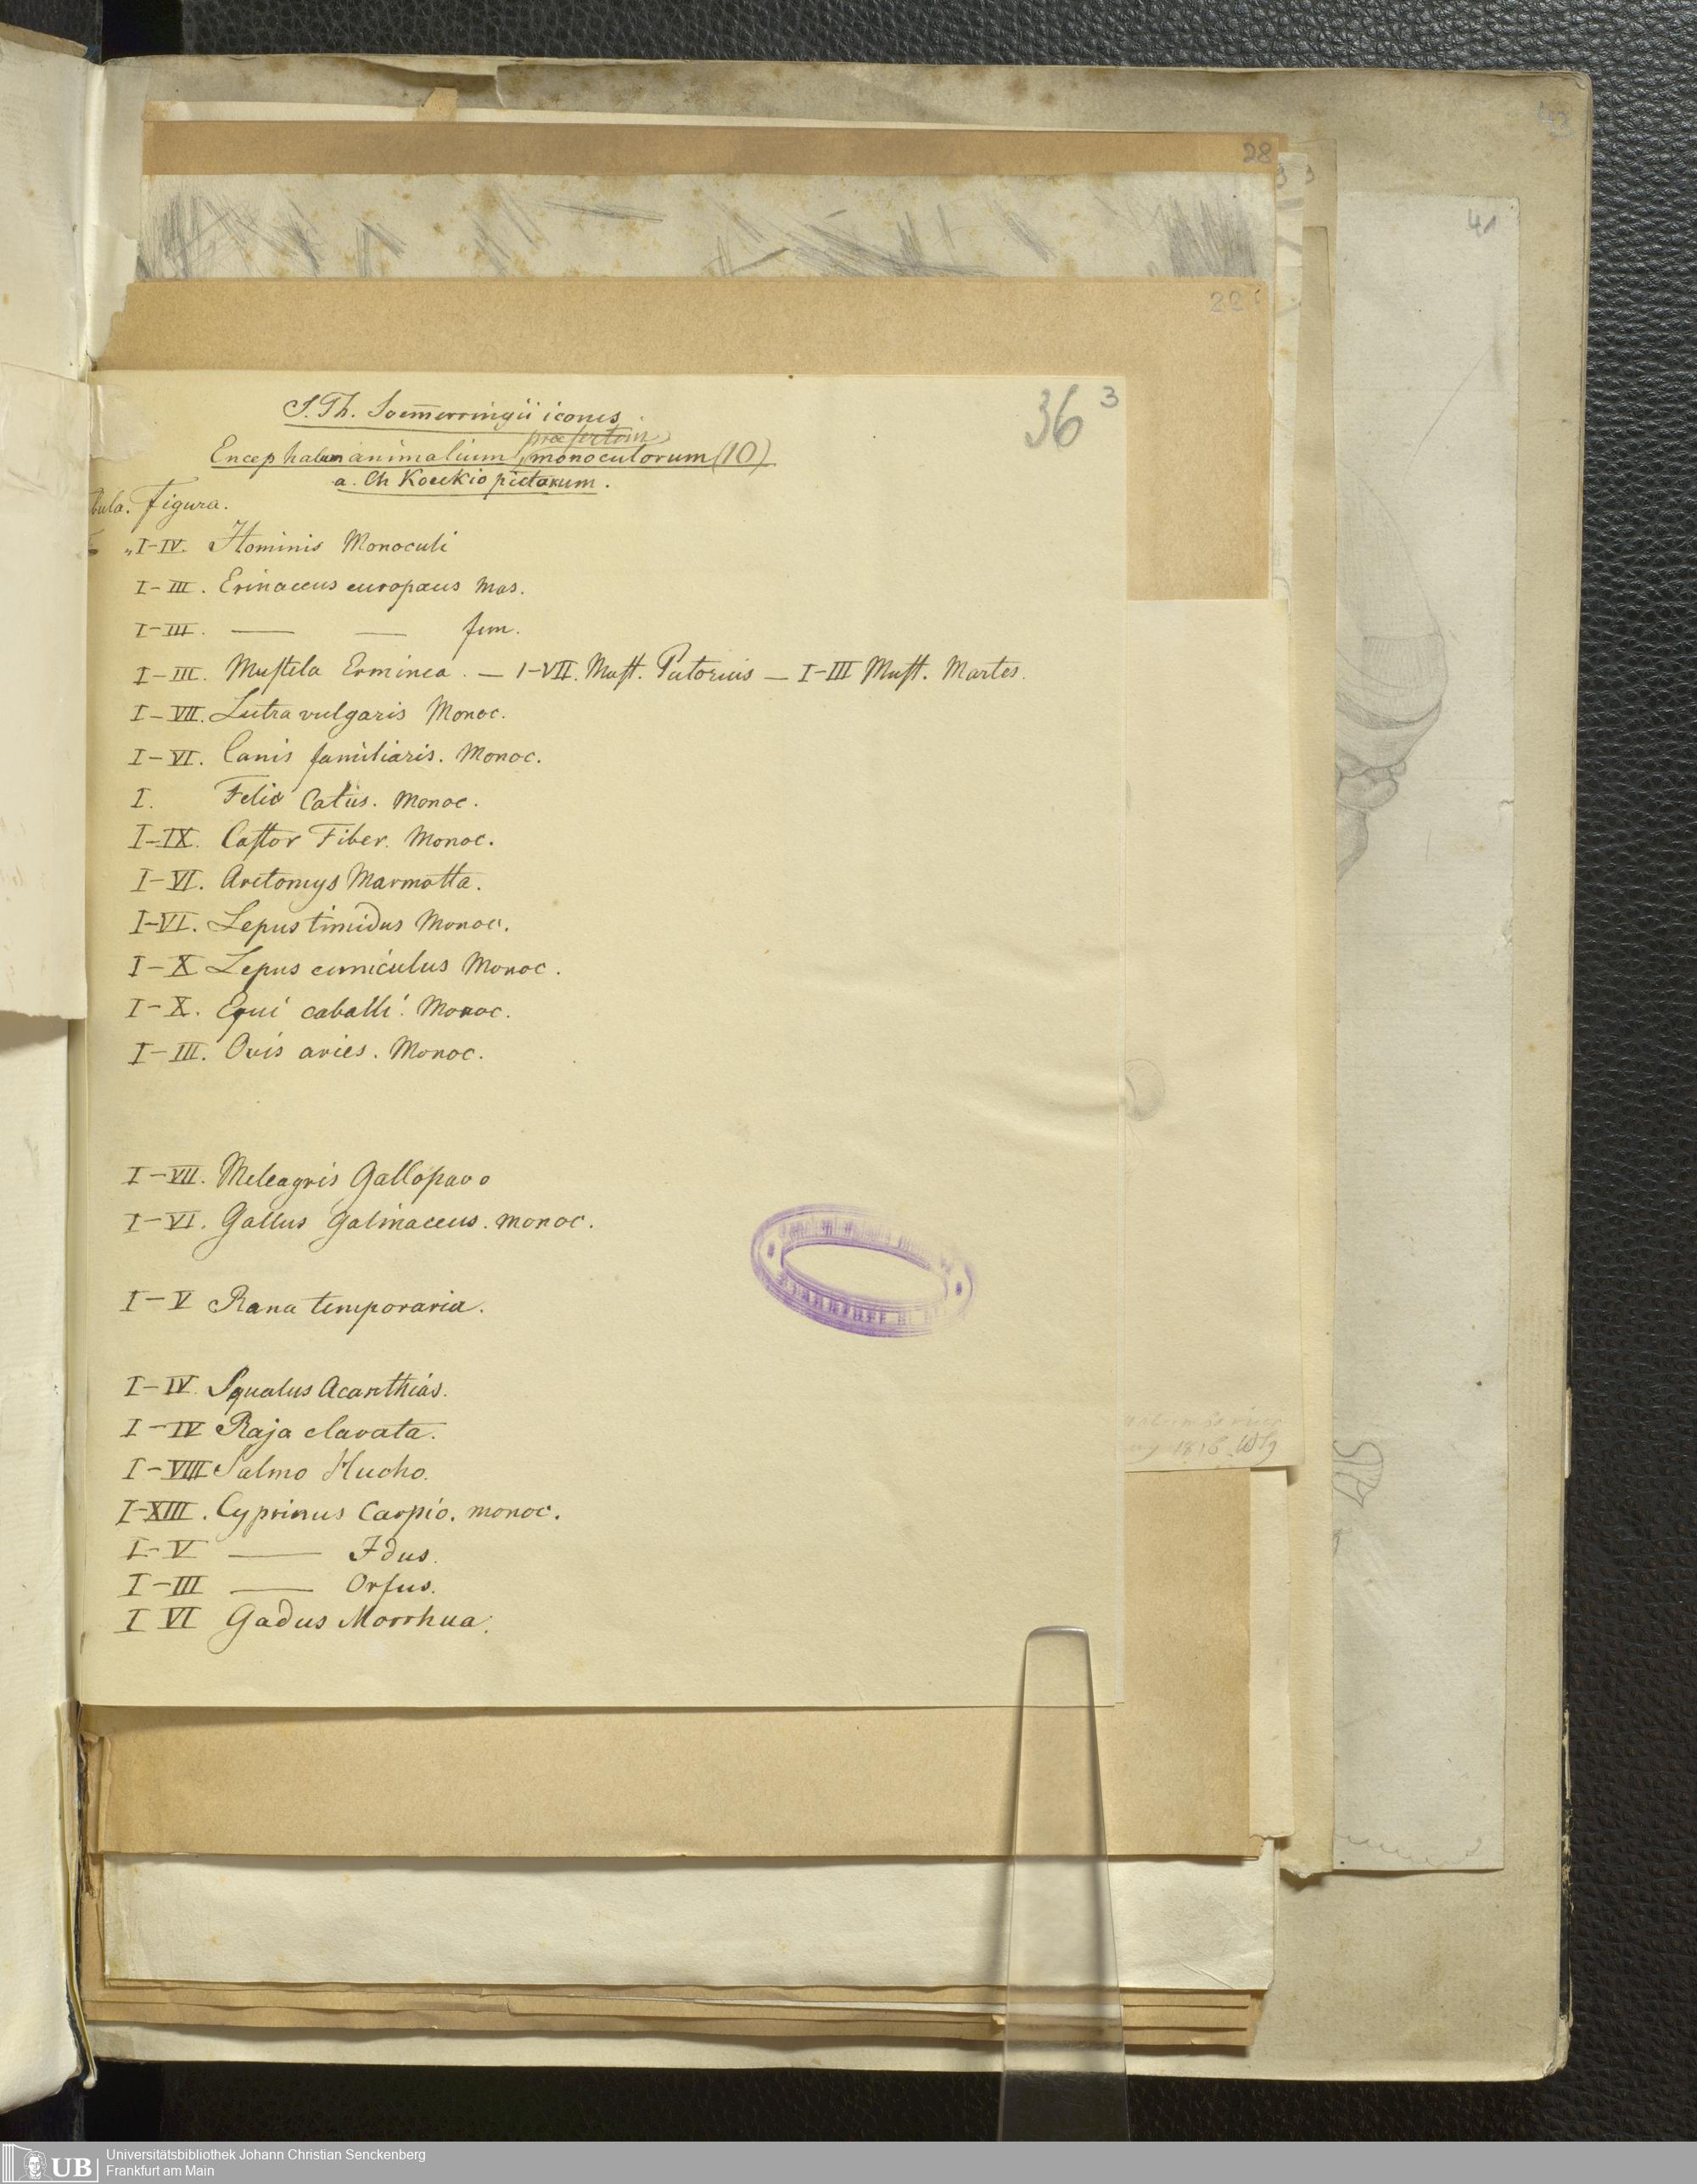 43
28
41
22
36 3
S. Th. Soem̅erringii icones
praesertim
Encephalum animalium, monoculorum (10)
a. Ch Koeckio pictarum.
bula. Figura.
„I-IV. Hominis Monoculi
I-III. Erinaceus europaeus mas.
I-III. — — fem.
I-III. Muſtela Erminea. — I-VII. Muſt. Putorius — I-III Muſt. Martes.
I-VII. Lutra vulgaris Monoc.
I-VI. Canis familiaris. Monoc.
I. Felis Catus. Monoc.
I-IX. Caſtor Fiber. Monoc.
I-VI. Arctomys Marmotta.
I-VI. Lepus timidus Monoc.
I-X Lepus cuniculus Monoc.
I-X. Equi caballi. Monoc.
I-III. Ovis aries. Monoc.
I-VII. Meleagris Gallopavo
I-VI. Gallus Galinaceus. monoc.
I-V Rana temporaria.
I-IV. Squalus Acanthias.
I-IV Raja clavata.
I-VIII Salmo Hucho.
I-XIII. Cyprinus Carpio. monoc.
I-V — Idus.
I-III — Orfus.
I VI Gadus Morrhua.
1818
UB Universitätsbibliothek Johann Christian Senckenberg
Frankfurt am Main